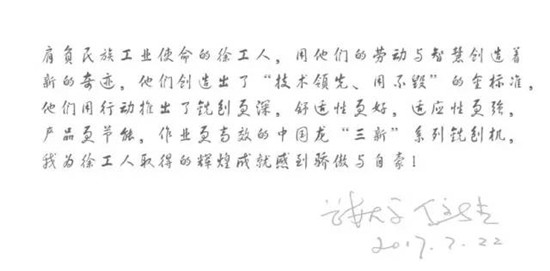 肩负民族工业使命的徐工人，用他们的劳动与智慧创造着
新的奇迹，他们创造出了“技术领先、用不毁”的金标准，
他们用行动推出了铣刨更深，舒适性更好，适应性更强，
产品更节能，作业更高效的中国龙“三新”系列铣刨机，
我为徐工人取得的辉煌成就感到骄傲与自豪！
2017.7.22